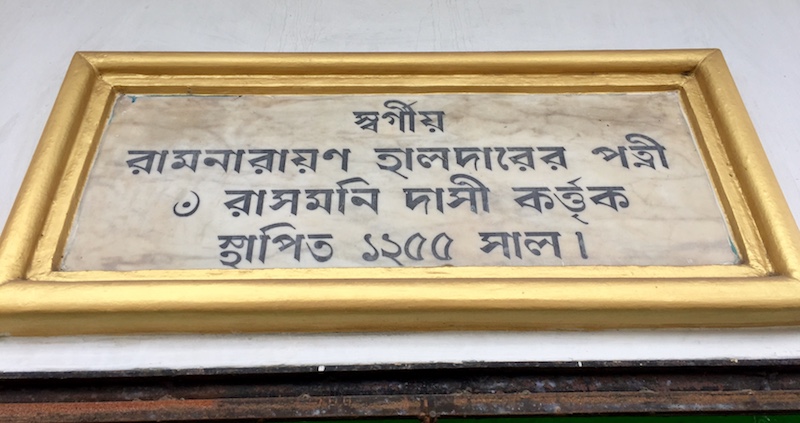 স্বর্গীয়
রামনারায়ণ হালদারের পত্নী
৺ রাসমনি দাসী কর্ত্তৃক
স্থাপিত ১২৫৫ সাল।